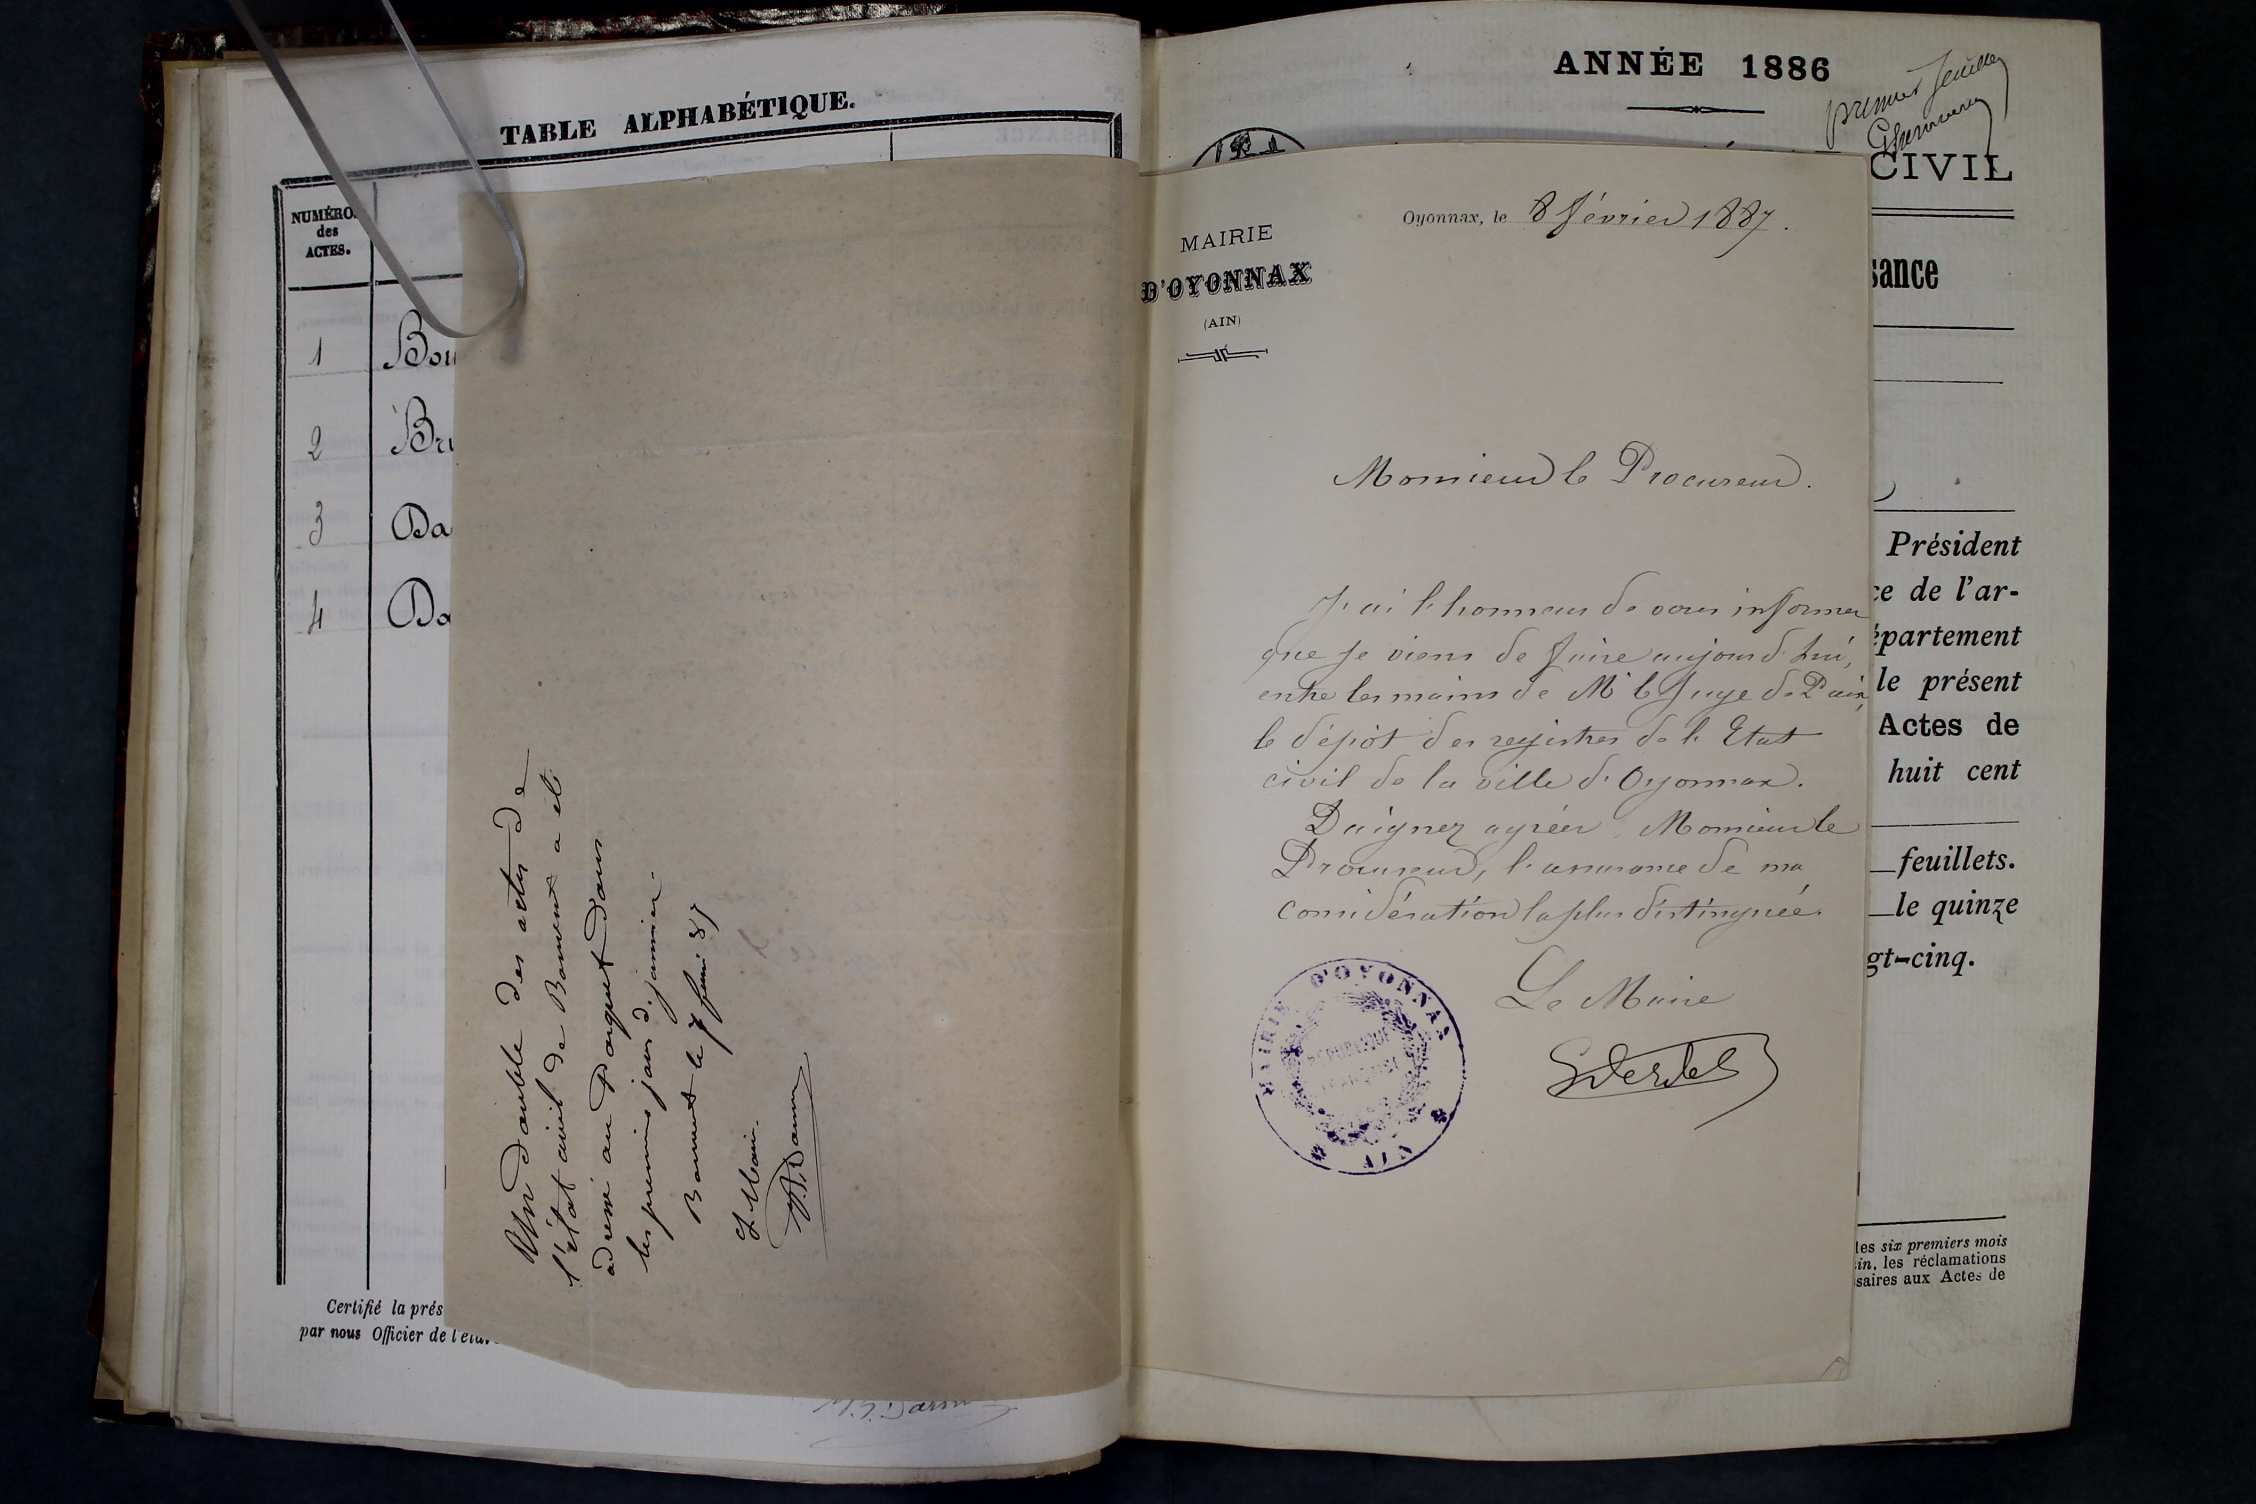 TABLE ALPHABÉTIQUE.
NUMÉRO
des
ACTES.
1 Bou
2 Bru
3 Da
4 Da
Certifié la prés
par nous Officier de l'éta
Un double des actes de
l'état civil de Bornent a été
adressé au Parquet dans
les premiers jours de janvier.
le 7 87
Le Maire
ANNÉE 1886
premier feuillet
CIVIL
sance
Président
ce de l'ar-
épartement
le présent
Actes de
huit cent
feuillets.
le quinze
gt-cinq.
les six premiers mois
in, les réclamations
saires aux Actes de
MAIRIE
D'OYONNAX
(AIN)
Oyonnax, le 8 février 1887.
Monsieur le Procureur.
J'ai l'honneur de vous informer
que je viens de faire aujourd'hui,
entre les mains de Mr le Juge de Paix,
le dépôt des registres de l'Etat
civil de la ville d'Oyonnax.
Daignez agréer, Monsieur le
Procureur, l'assurance de ma
considération la plus distinguée.
Le Maire
MAIRIE D'OYONNAX
RÉPUBLIQUE
FRANÇAISE
AIN